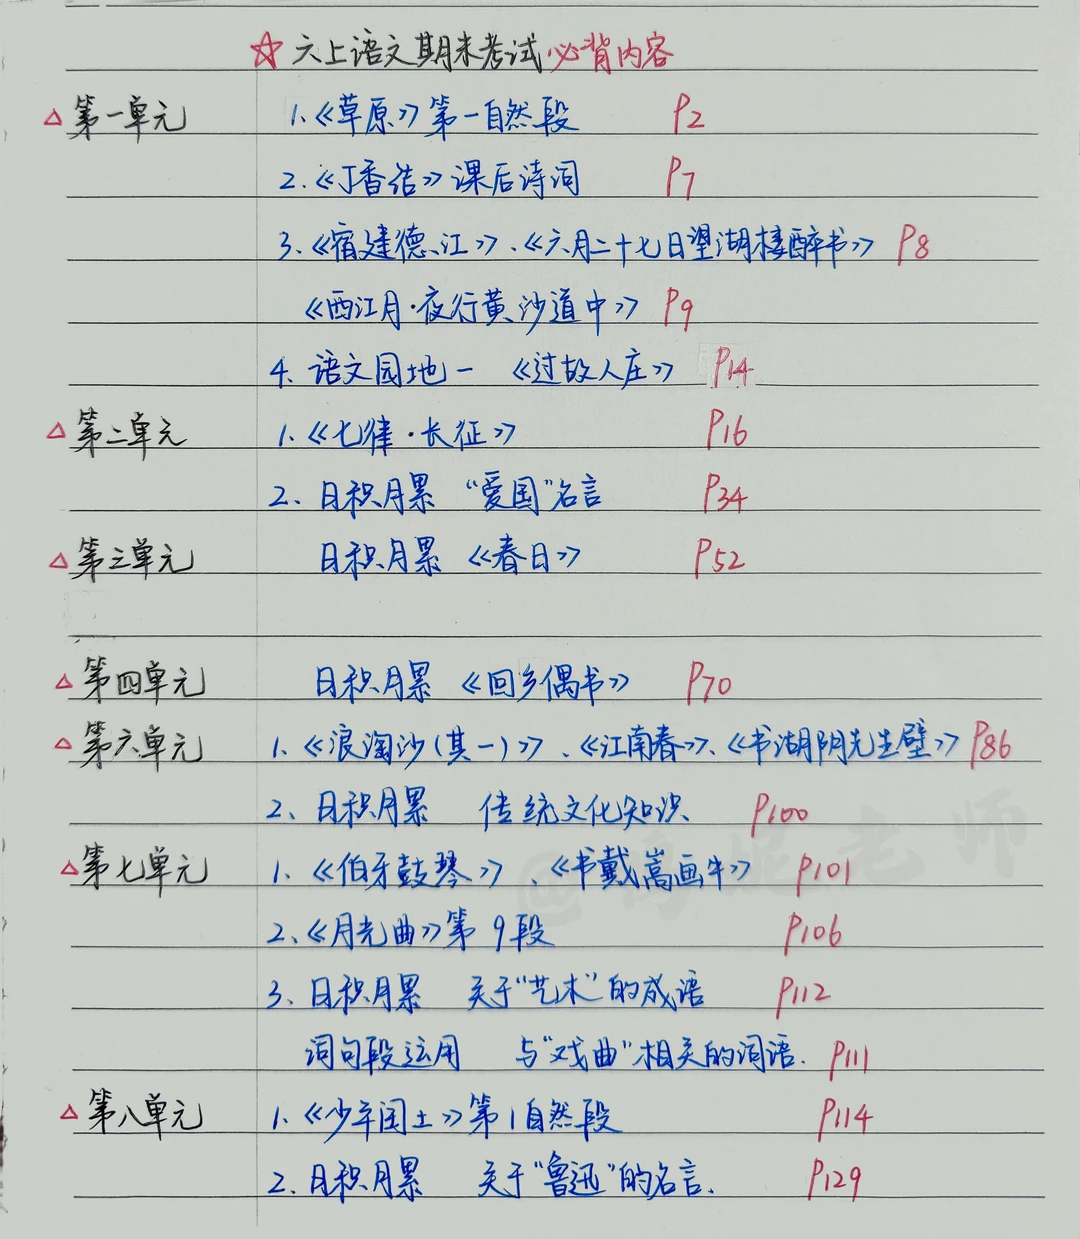 ☆六上语文期末考试必背内容
△第一单元 1.《草原》第一自然段 P2
2.《丁香结》课后诗词 P7
3.《宿建德江》、《六月二十七日望湖楼醉书》 P8
《西江月·夜行黄沙道中》 P9
4. 语文园地一 《过故人庄》 P14
△第二单元 1.《七律·长征》 P16
2. 日积月累 “爱国”名言 P34
△第三单元 日积月累 《春日》 P52
△第四单元 日积月累 《回乡偶书》 P70
△第六单元 1.《浪淘沙(其一)》、《江南春》、《书湖阴先生壁》 P86
2、日积月累 传统文化知识 P100
△第七单元 1.《伯牙鼓琴》、《书戴嵩画牛》 P101
2、《月光曲》第9段 P106
3、日积月累 关于“艺术”的成语 P112
词句段运用 与“戏曲”相关的词语. P111
△第八单元 1.《少年闰土》第1自然段 P114
2. 日积月累 关于“鲁迅”的名言. P129